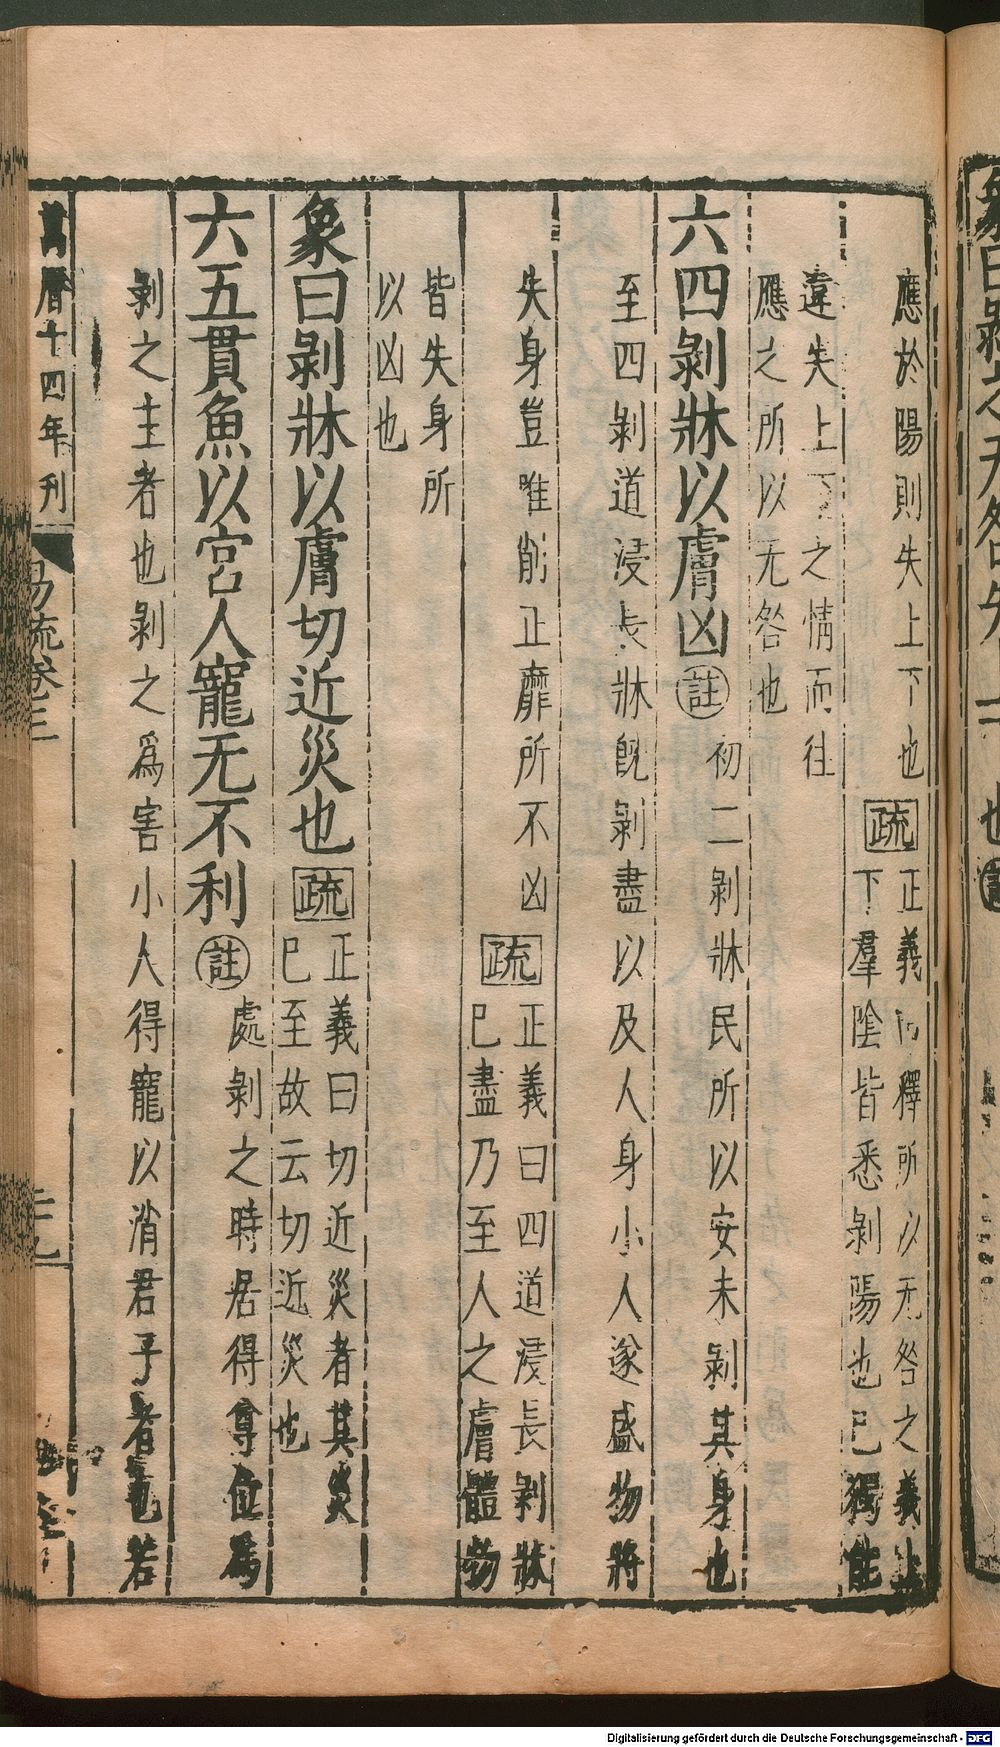 應於陽則失上下也疏正義曰釋所以无咎之義上
下羣陰皆悉剝陽也已獨能
違失上下之情而往
應之所以无咎也
六四剝牀以膚凶註初二剝牀民所以安未剝其身也
至四剝道浸長牀旣剝盡以及人身小人遂盛物將
失身豈唯削正靡所不凶疏正義曰四道浸長剝牀
已盡乃至人之膚體物
皆失身所
以凶也
象曰剝牀以膚切近災也疏正義曰切近災者其災
已至故云切近災也
六五貫魚以宮人寵无不利註處剝之時居得尊位爲
剝之主者也剝之爲害小人得寵以消君子者也若
萬曆十四年刊
易疏卷三
二九
Digitalisierung gefördert durch die Deutsche Forschungsgemeinschaft - DFG